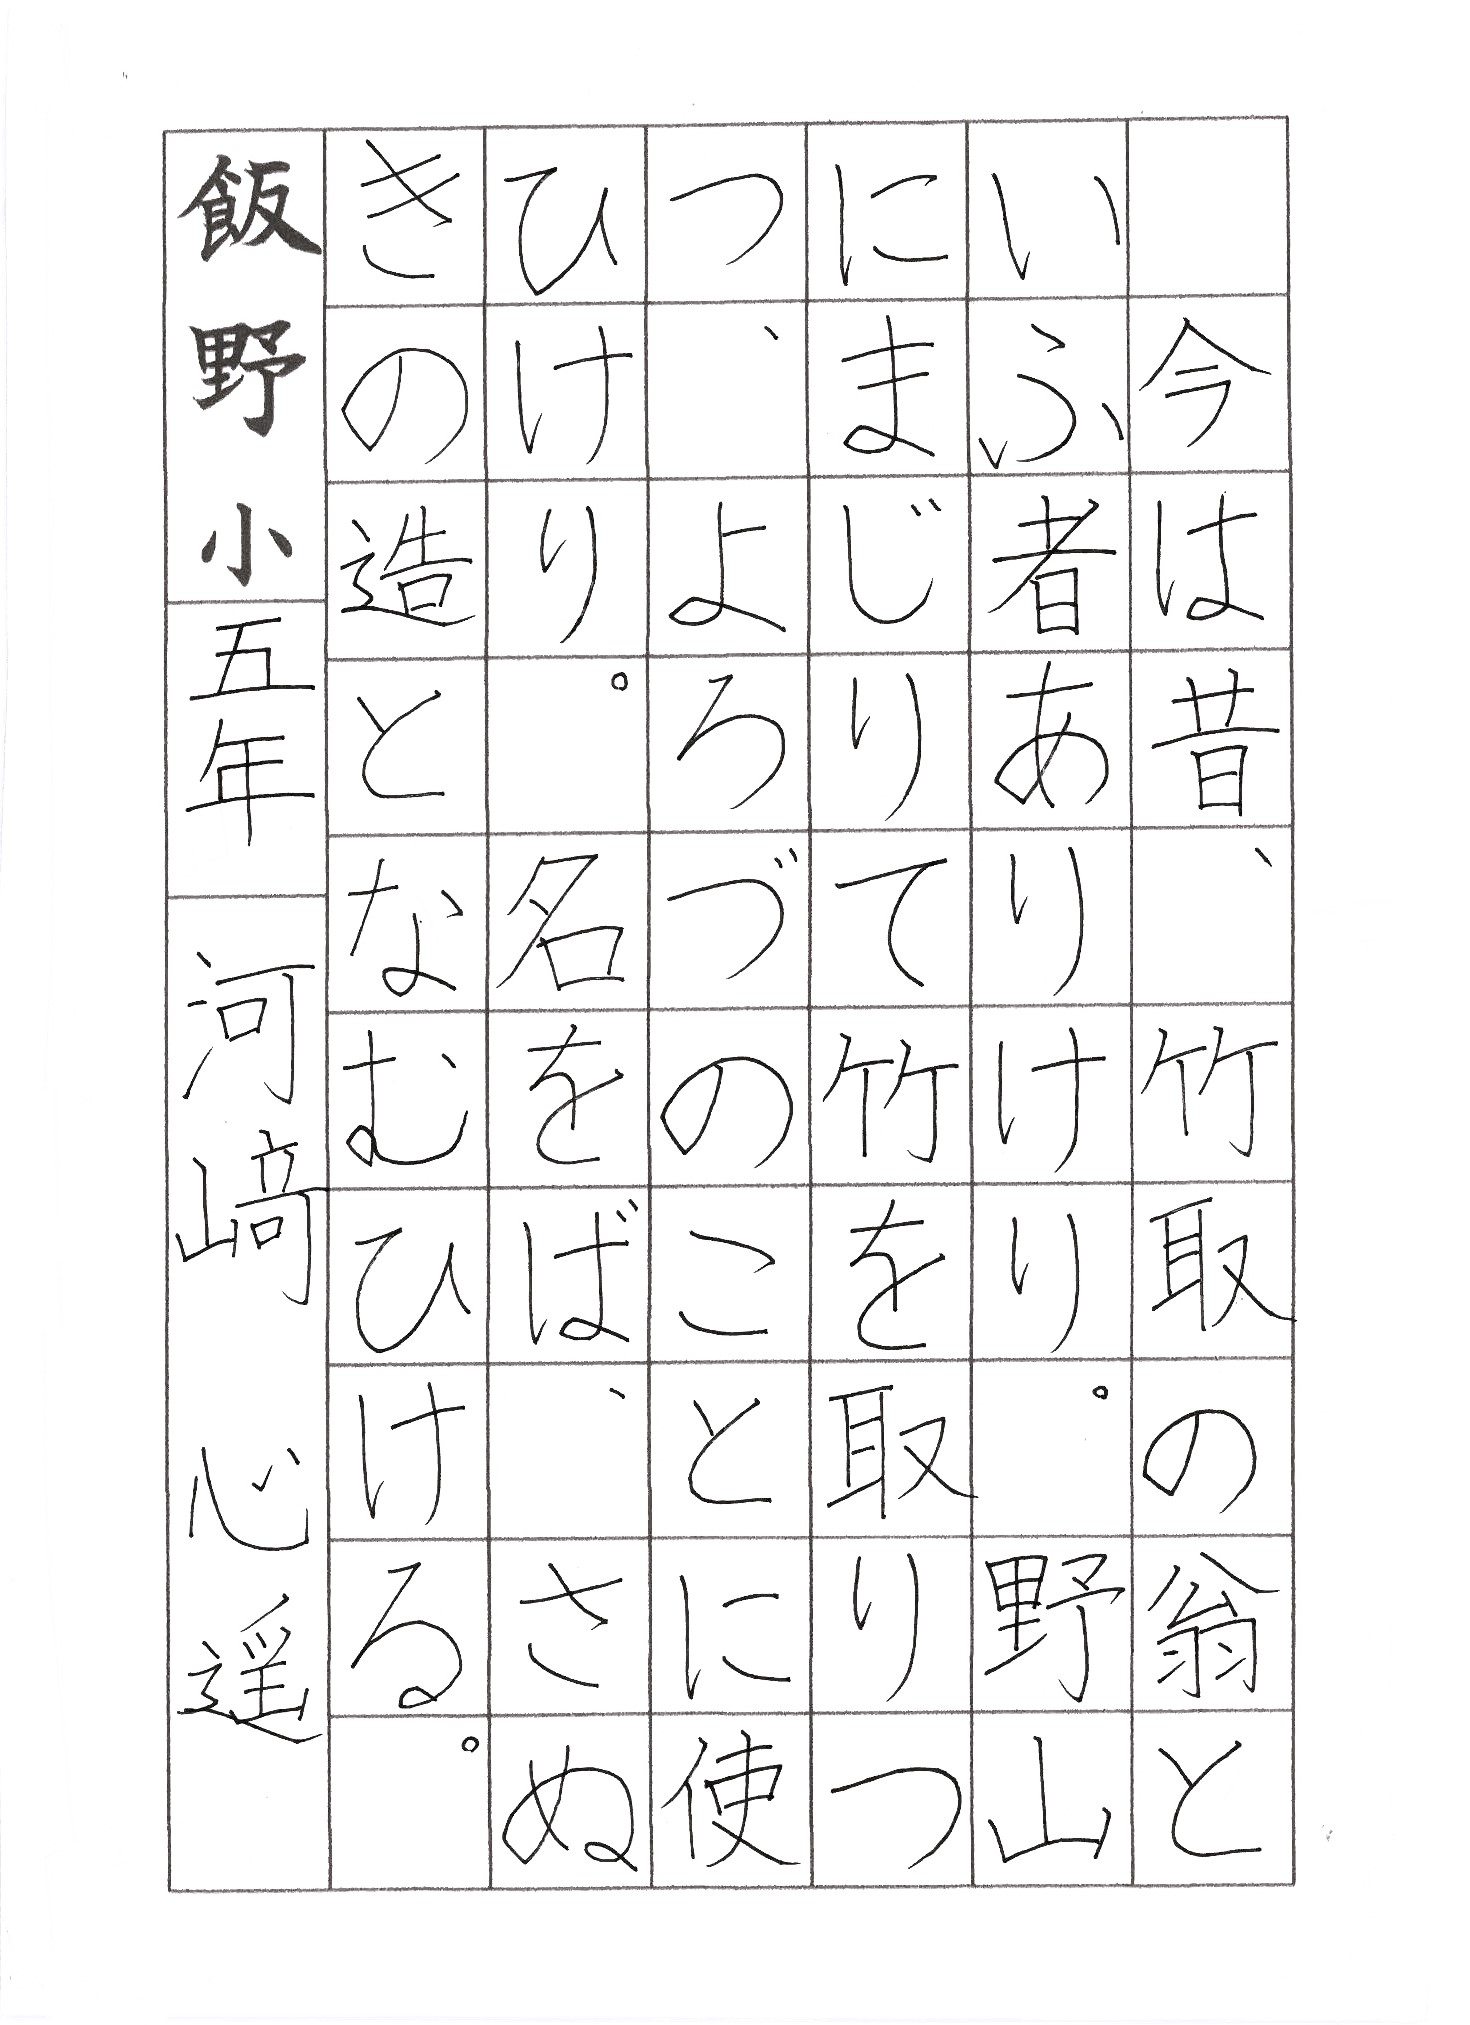 今は昔、竹取の翁と
いふ者ありけり。野山
にまじりて竹を取りつ
つ、よろづのことに使
ひけり。名をば、さぬ
きの造となむひける。
飯野小五年河﨑心遥